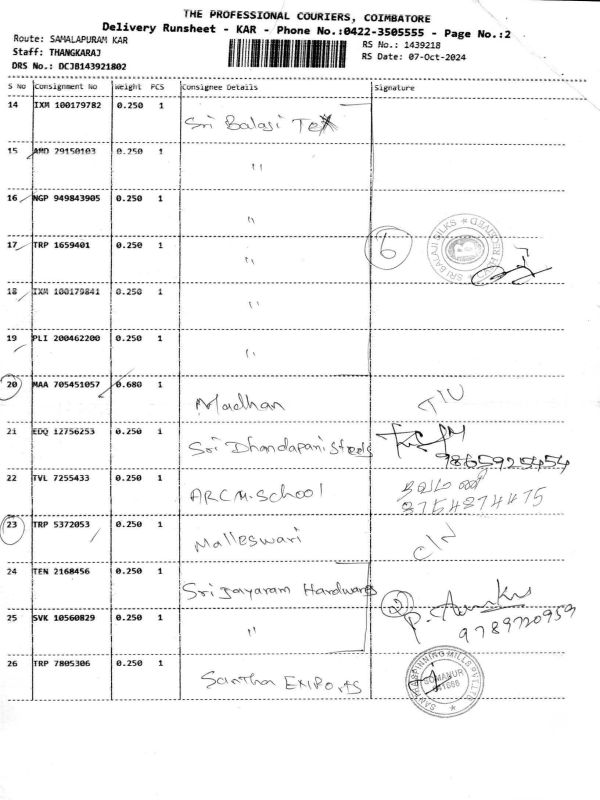 THE PROFESSIONAL COURIERS, COIMBATORE
Delivery Runsheet - KAR - Phone No.:0422-3505555 - Page No.:2
Route: SAMALAPURAM KAR
RS No.: 1439218
Staff: THANGKARAJ
RS Date: 07-Oct-2024
DRS No.: DCJB143921802
S No Consignment No Weight PCS Consignee Details Signature
14 IXM 100179782 0.250 1 Sri Balaji Tex
15 AMD 29150103 0.250 1 "
16 NGP 949843905 0.250 1 "
17 TRP 1659401 0.250 1 " 6 SRI BALAJI SILKS
18 IXM 100179841 0.250 1 "
19 PLI 200462200 0.250 1 "
20 MAA 705451057 0.680 1 Madhan
21 EDQ 12756253 0.250 1 Sri Dhandapani Steels 9865925454
22 TVL 7255433 0.250 1 ARC M. School
23 TRP 5372053 0.250 1 Malleswari C/N
24 TEN 2168456 0.250 1 Sri Jayaram Hardwares 2
25 SVK 10560829 0.250 1 " 9789720959
26 TRP 7805306 0.250 1 Santha Exports SPINNING MILLS PVT LTD SOMANUR